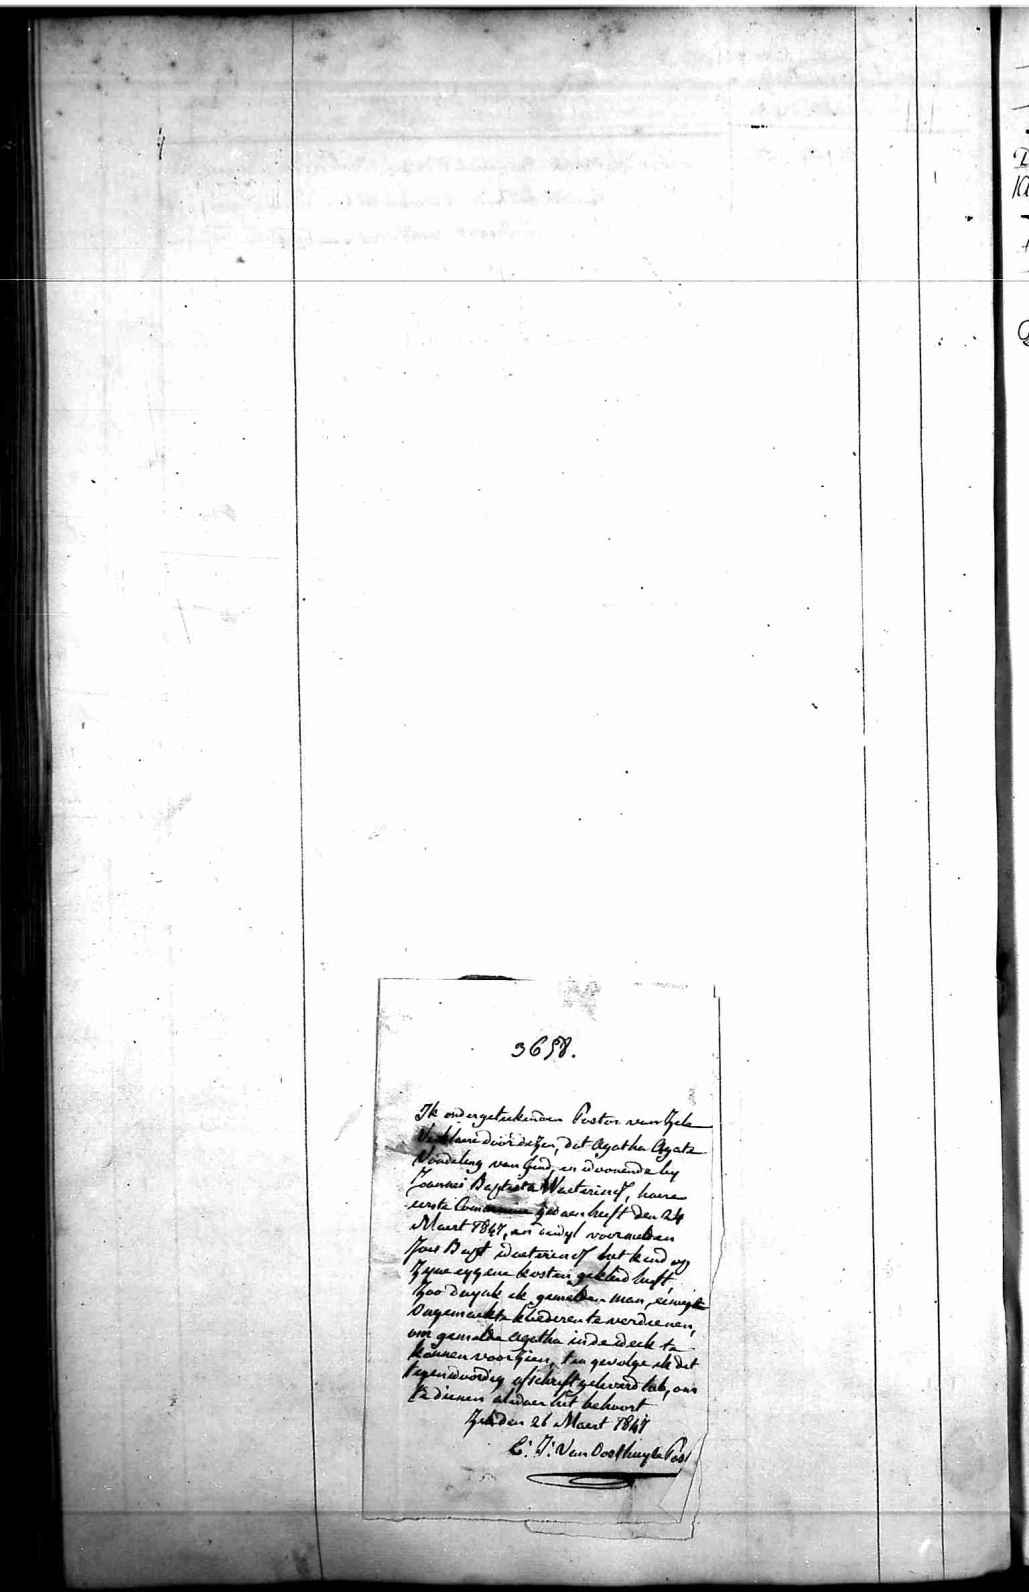 3658.
Ik ondergeteekenden Pastor van Zele
Verklaere door dezen, dat Agatha Agata
Vondeling van Gend, en woonende by
Joannes Baptista Waeterinckx, haere
eerste Communie gedaen heeft den 24
Maert 1847, en terwyl voormelden
Joes Bapt het kind op
Zyne eygene kosten gekleed heeft
Zoo denk ik gemelden man, eenige
ongemaekte kleederen te verdienen,
om gemelde Agatha in de week te
konnen voorzien, ten gevolge ik dit
tegenwoordig afschrift geleverd heb, om
te dienen aldaer het behoort
Zele den 26 Maert 1847
C: J: Van Oosthuyse Past